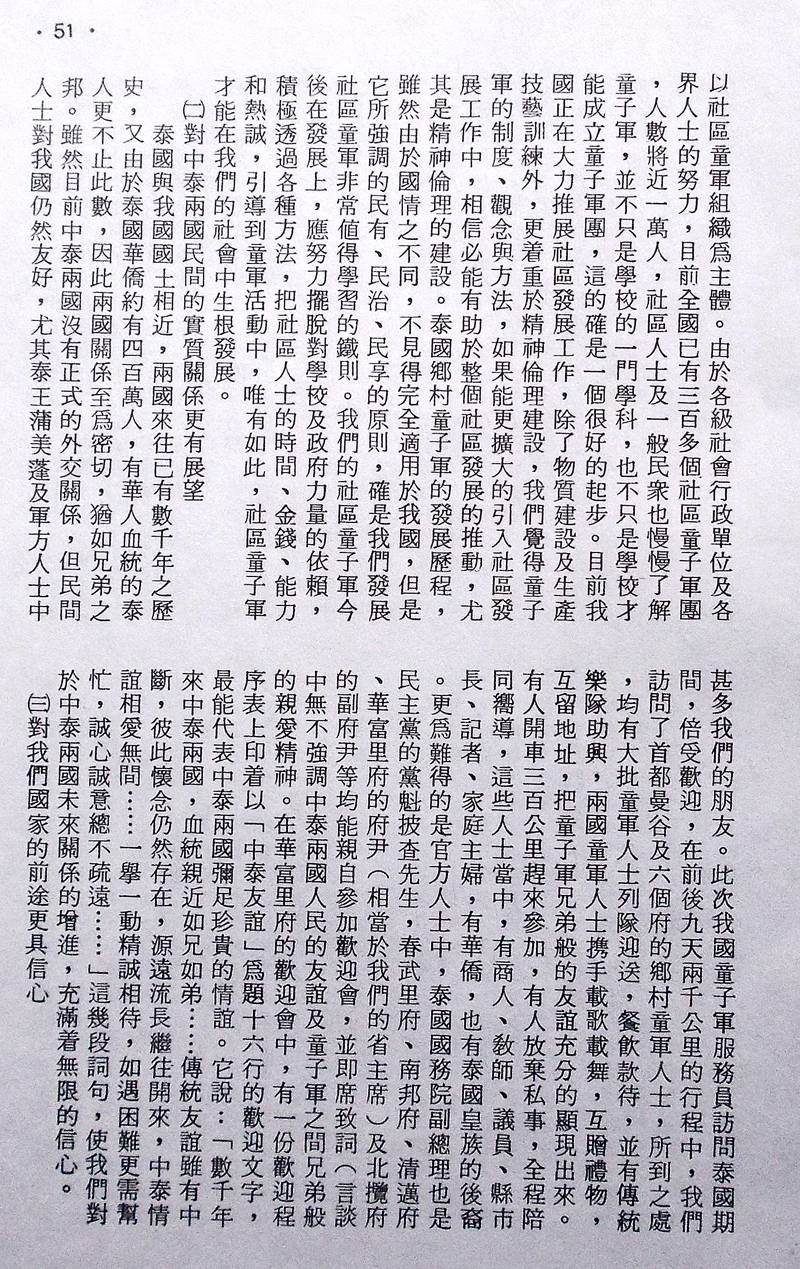 • 51 •
以社區童軍組織爲主體。由於各級社會行政單位及各
界人士的努力，目前全國已有三百多個社區童子軍團
，人數將近一萬人，社區人士及一般民衆也慢慢了解
童子軍，並不只是學校的一門學科，也不只是學校才
能成立童子軍團，這的確是一個很好的起步。目前我
國正在大力推展社區發展工作，除了物質建設及生產
技藝訓練外，更着重於精神倫理建設，我們覺得童子
軍的制度、觀念與方法，如果能更擴大的引入社區發
展工作中，相信必能有助於整個社區發展的推動，尤
其是精神倫理的建設。泰國鄉村童子軍的發展歷程，
雖然由於國情之不同，不見得完全適用於我國，但是
它所強調的民有、民治、民享的原則，確是我們發展
社區童軍非常値得學習的鐵則。我們的社區童子軍今
後在發展上，應努力擺脫對學校及政府力量的依賴，
積極透過各種方法，把社區人士的時間、金錢、能力
和熱誠，引導到童軍活動中，唯有如此，社區童子軍
才能在我們的社會中生根發展。
㈡對中泰兩國民間的實質關係更有展望
泰國與我國國土相近，兩國來往已有數千年之歷
史，又由於泰國華僑約有四百萬人，有華人血統的泰
人更不止此數，因此兩國關係至爲密切，猶如兄弟之
邦。雖然目前中泰兩國沒有正式的外交關係，但民間
人士對我國仍然友好，尤其泰王蒲美蓬及軍方人士中
甚多我們的朋友。此次我國童子軍服務員訪問泰國期
間，倍受歡迎，在前後九天兩千公里的行程中，我們
訪問了首都曼谷及六個府的鄉村童軍人士，所到之處
，均有大批童軍人士列隊迎送，餐飲款待，並有傳統
樂隊助興，兩國童軍人士携手載歌載舞，互贈禮物，
互留地址，把童子軍兄弟般的友誼充分的顯現出來。
有人開車三百公里趕來參加，有人放棄私事，全程陪
同嚮導，這些人士當中，有商人、敎師、議員、縣市
長、記者、家庭主婦，有華僑，也有泰國皇族的後裔
。更爲難得的是官方人士中，泰國國務院副總理也是
民主黨的黨魁披查先生，春武里府、南邦府、清邁府
、華富里府的府尹（相當於我們的省主席）及北攬府
的副府尹等均能親自參加歡迎會，並即席致詞（言談
中無不強調中泰兩國人民的友誼及童子軍之間兄弟般
的親愛精神。在華富里府的歡迎會中，有一份歡迎程
序表上印着以「中泰友誼」爲題十六行的歡迎文字，
最能代表中泰兩國彌足珍貴的情誼。它說：「數千年
來中泰兩國，血統親近如兄如弟……傳統友誼雖有中
斷，彼此懷念仍然存在，源遠流長繼往開來，中泰情
誼相愛無間……一擧一動精誠相待，如遇困難更需幫
忙，誠心誠意總不疏遠……」這幾段詞句，使我們對
於中泰兩國未來關係的增進，充滿着無限的信心。
㈢對我們國家的前途更具信心